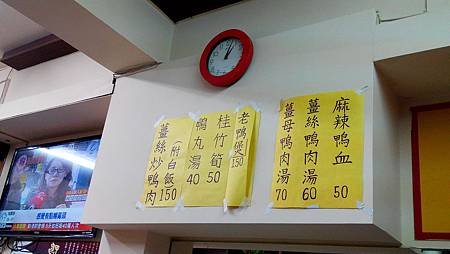 麻辣鴨血 50
薑絲鴨肉湯 60
薑母鴨肉湯 70
老鴨煲 150
桂竹筍 50
鴨丸湯 40
(附白飯)
薑絲炒鴨肉 150